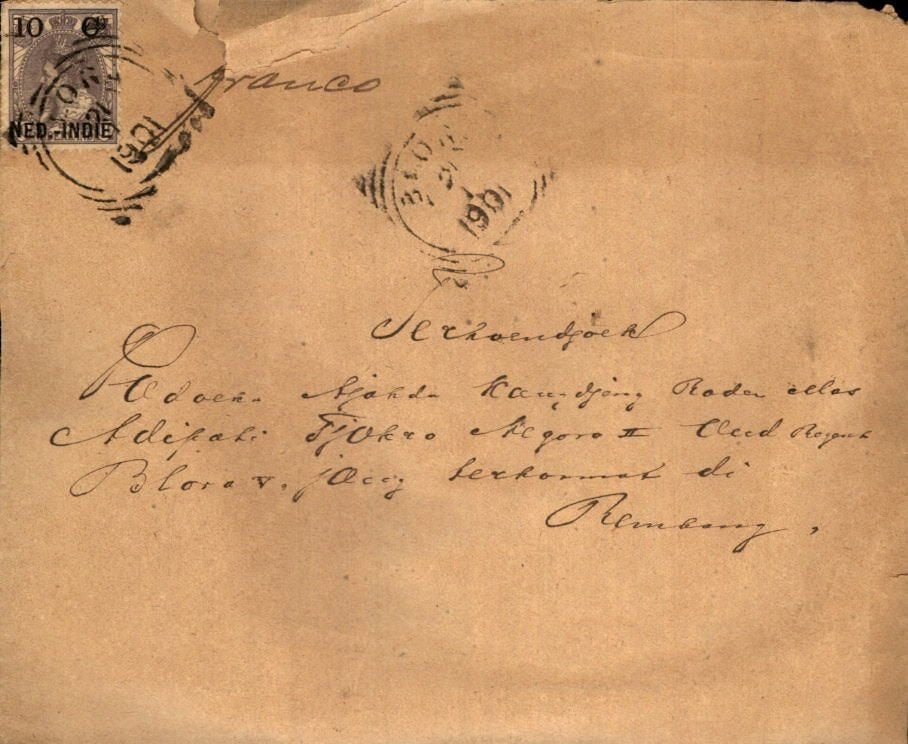 10 Ct
NED.-INDIË
BLORA
1901
franco
BLORA
1901
Terhoendjoek
Padoeka Ajahda Kangdjeng Raden Mas
Adipati Tjokro Negoro II Oud Regent
Blora v. jang terhormat di
Rembang,